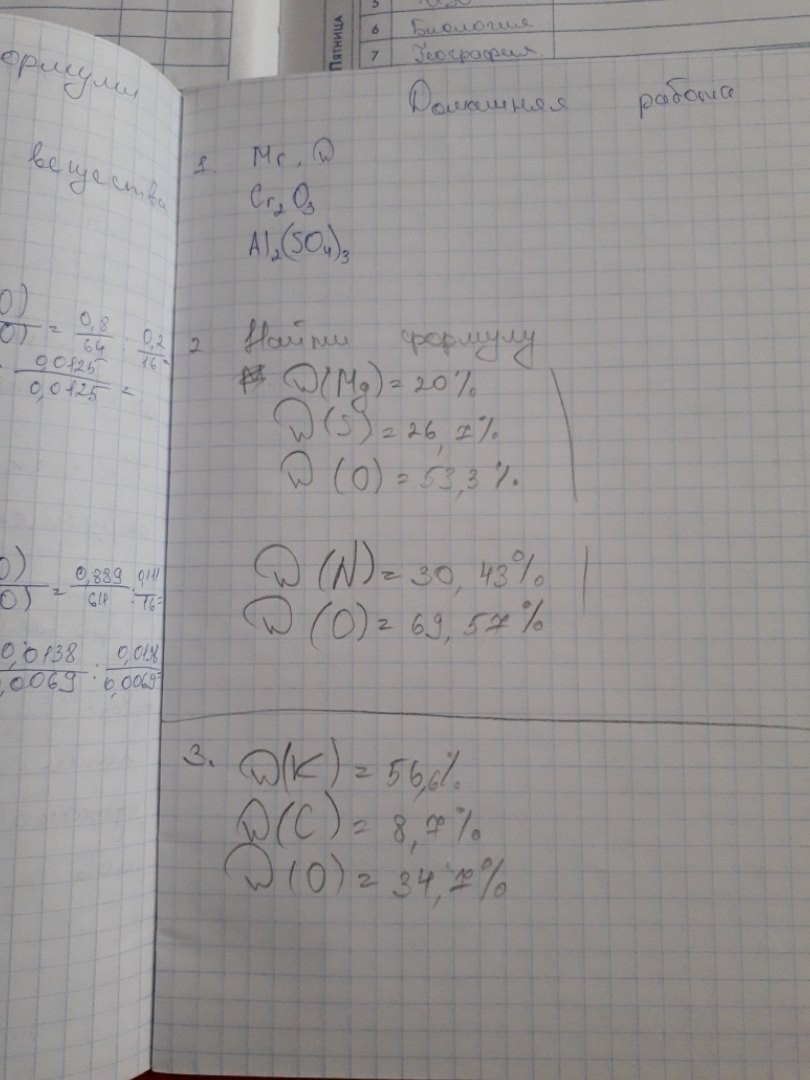 5
6 Биология
7 География
Пятница
формулы
вещества
0) / 0) = 0,8/64 : 0,2/16 =
0,0125 / 0,0125 =
0) / 0) = 0,889/64 : 0,111/16 =
0,0138/0,0069 : 0,0138/0,0069
Домашняя работа
1. Mr, ω
Cr₂O₃
Al₂(SO₄)₃
2 Найти формулу
ω(Mg) = 20%
ω(S) = 26,7%
ω(O) = 53,3%.
ω(N) = 30,43%
ω(O) = 69,57%
3. ω(K) = 56,6%.
ω(C) = 8,7%
ω(O) = 34,7%